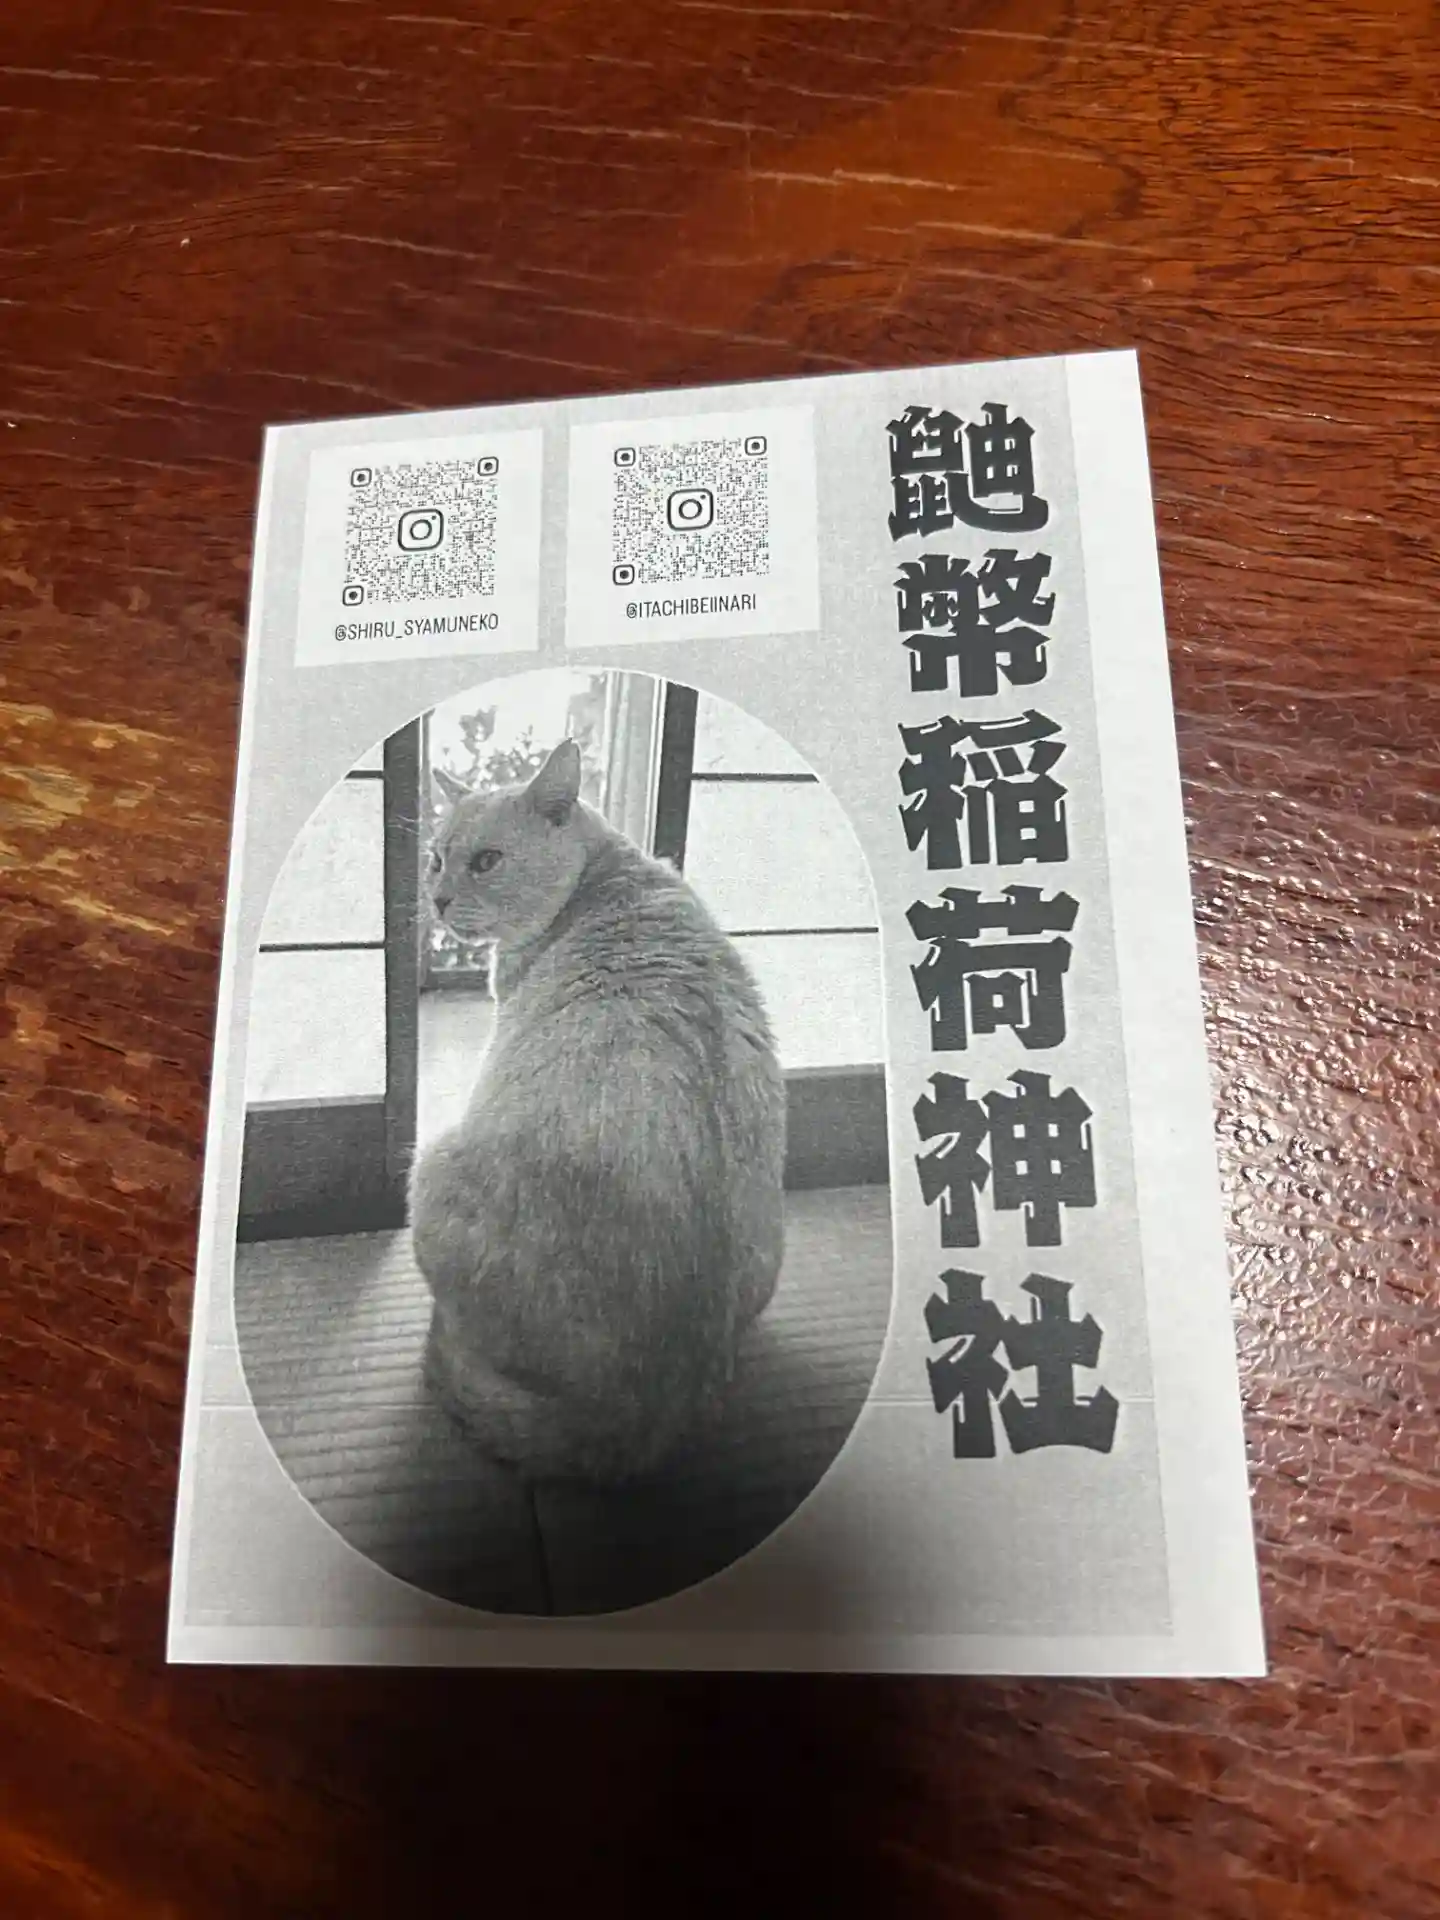 鼬幣稲荷神社
@SHIRU_SYAMUNEKO
@ITACHIBEIINARI